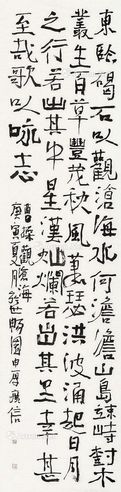 東臨碣石以觀滄海水何澹澹山島竦峙樹木
叢生百草豐茂秋風蕭瑟洪波涌起日月
之行若出其中星漢燦爛若出其里幸甚
至哉歌以咏志
曹操觀滄海
庚寅夏月